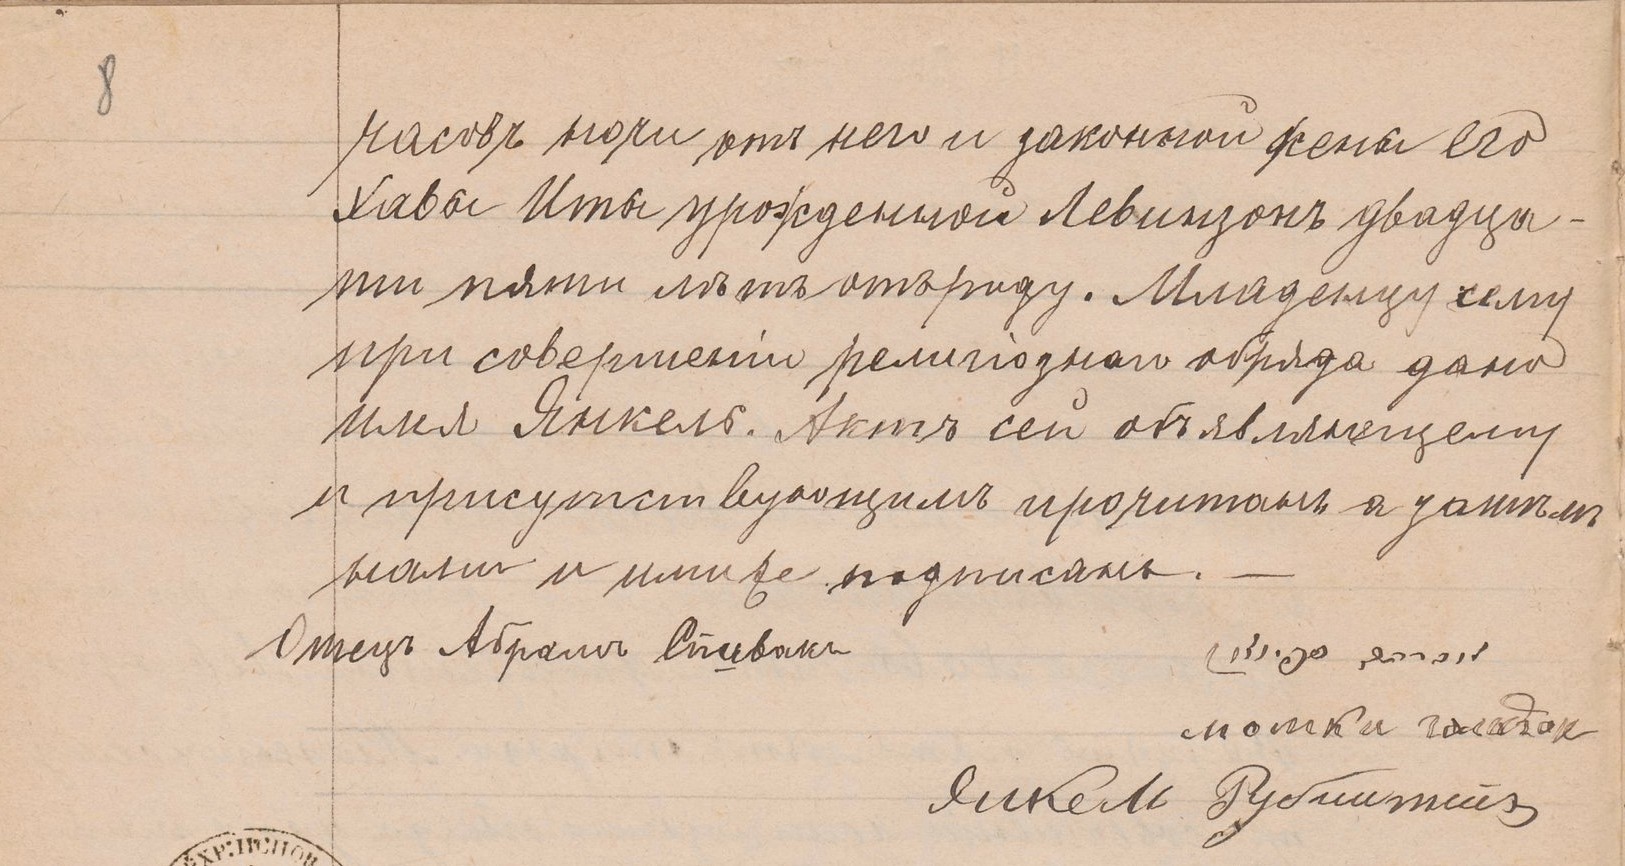 8
часовъ ночи отъ него и законной жены его
Хавы Иты урожденной Левинзонъ двадца-
ти пяти лѣтъ отъ роду. Младенцу сему
при совершеніи религіознаго обряда дано
имя Янкель. Актъ сей объявляющему
и присутствующимъ прочитанъ а затѣмъ
нами и ими же подписанъ. —
Отецъ Абрамъ Спивакъ
Янкель Рубинштейнъ